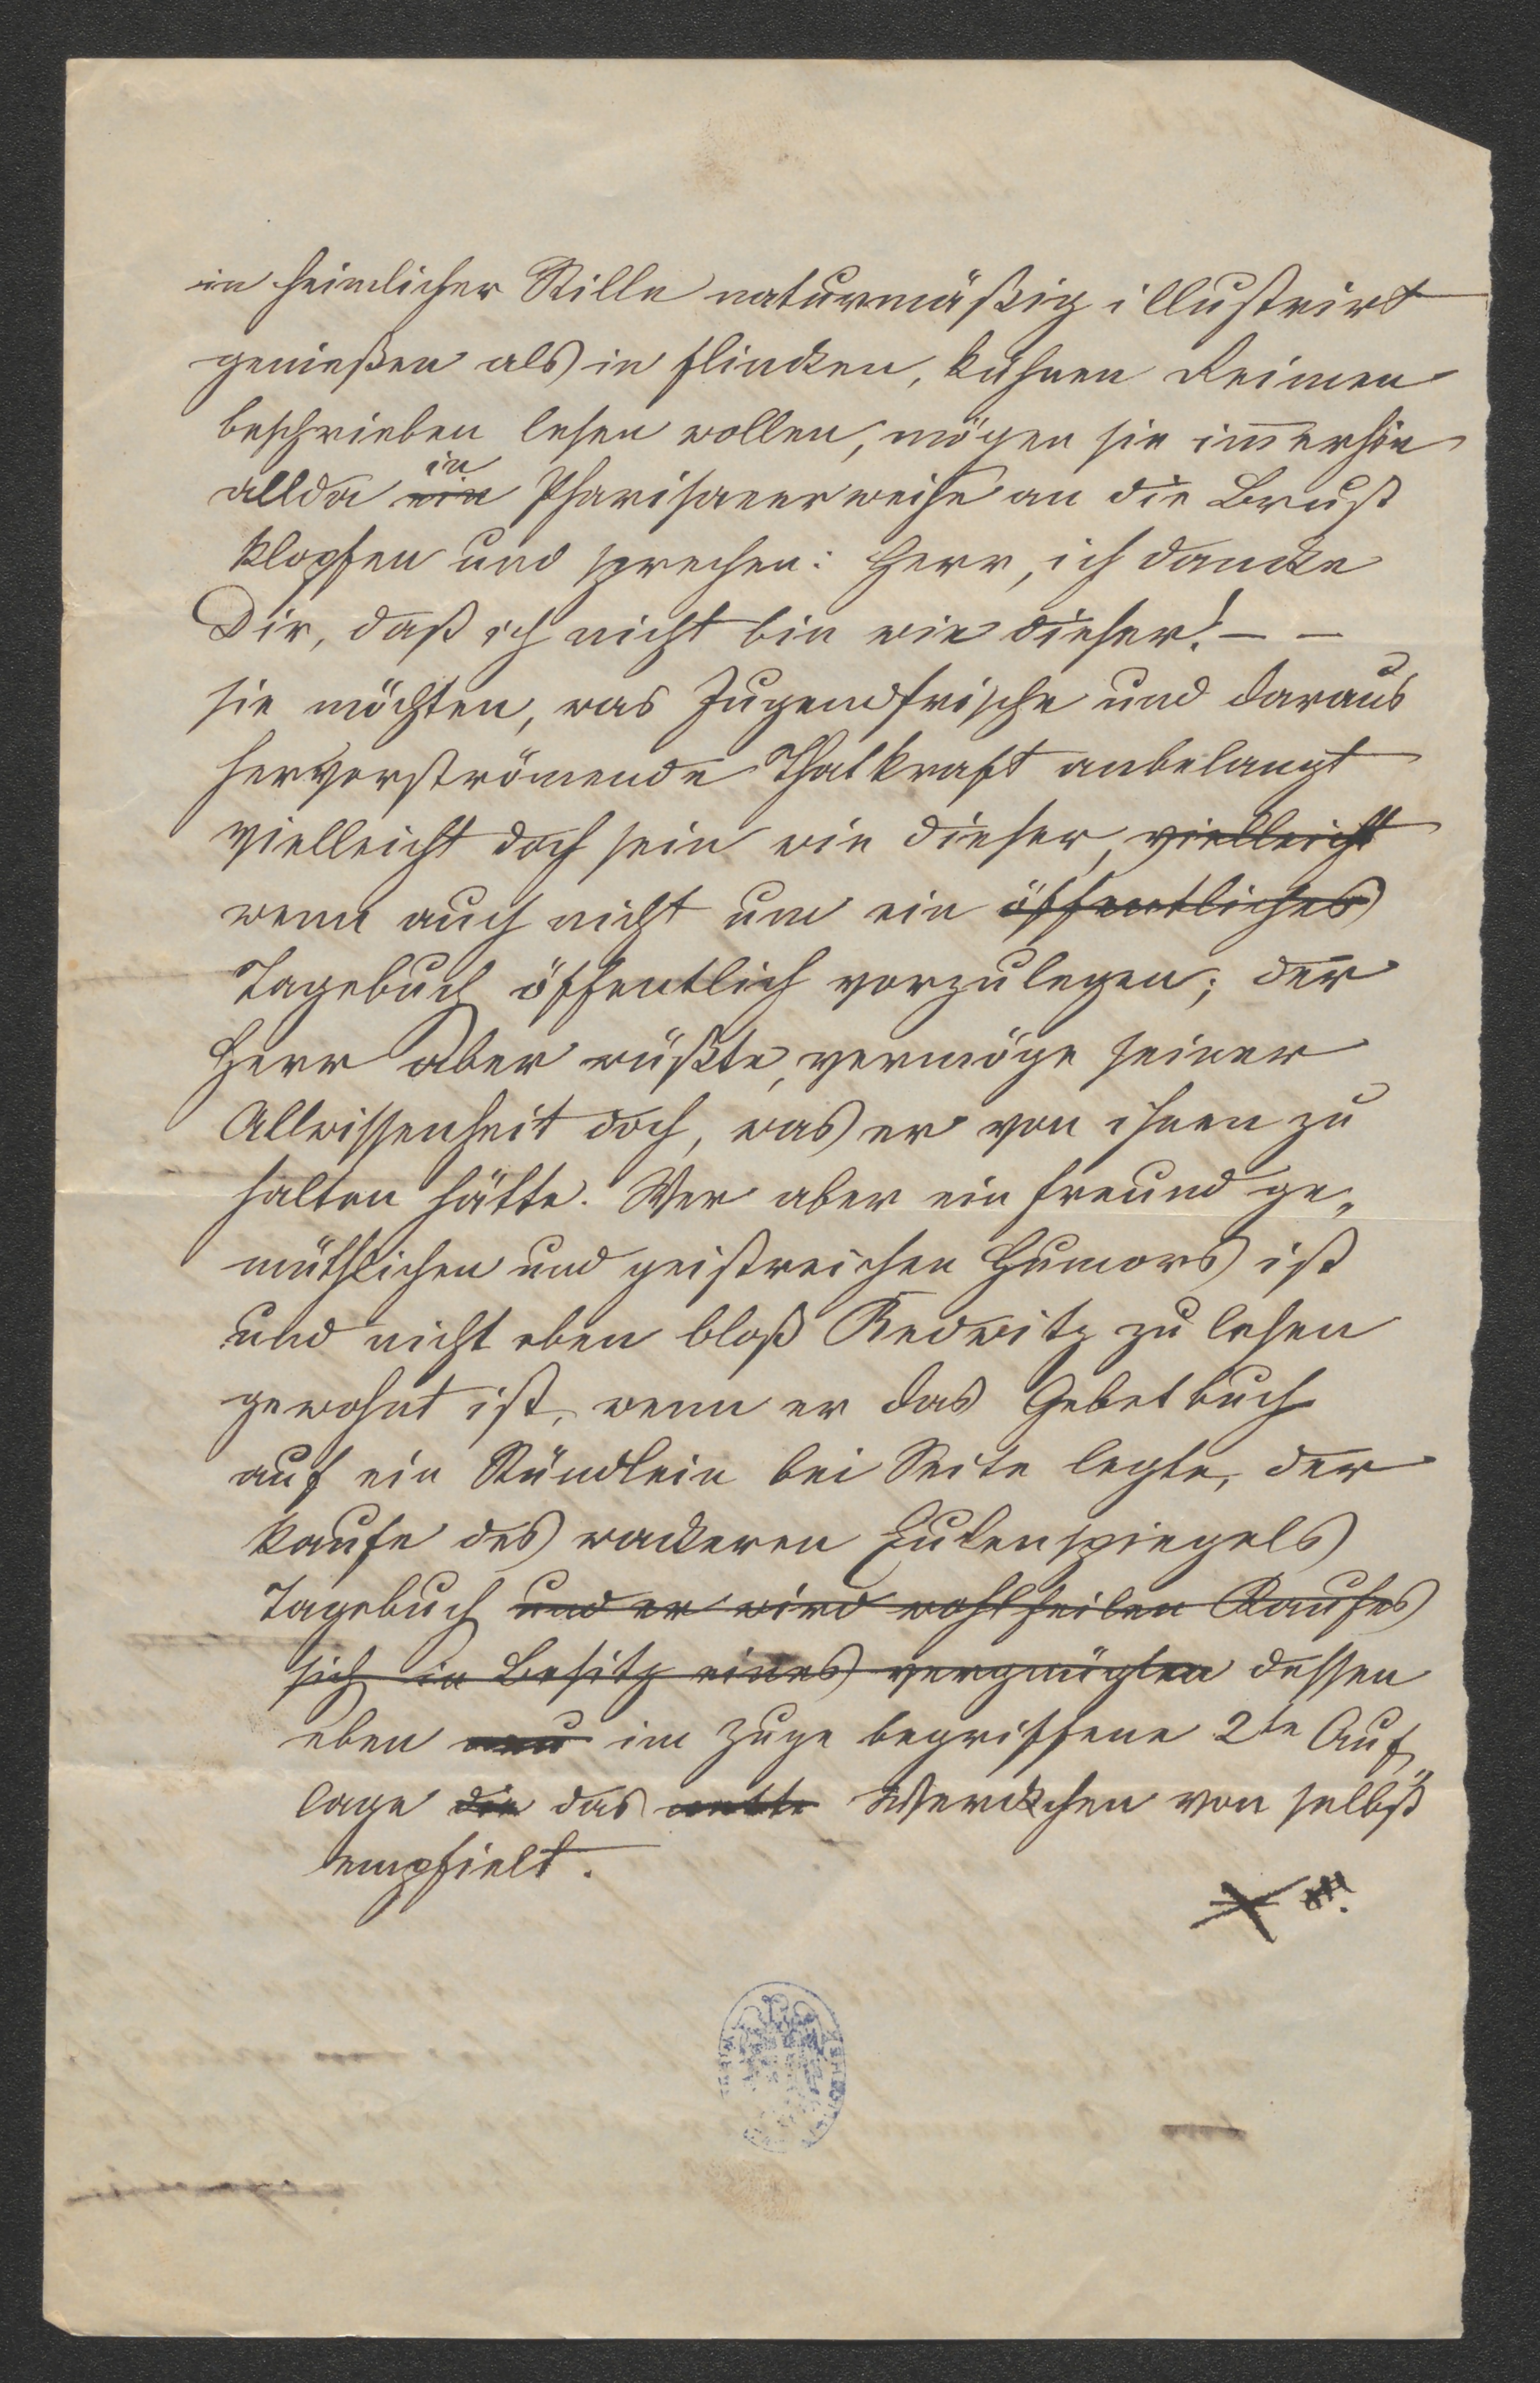 in heimlicher Stille naturmäßig illustrirt
genießen als in flincken, kühnen Reimen
beschrieben lesen wollen, mögen sie im̅erhin
in
allda ein Pharisaeerweise an die Brust
klopfen und sprechen: Herr, ich dancke
Dir, daß ich nicht bin wie dieser! – –
sie möchten, was Jugendfrische und daraus
hervorströmende Thatkraft anbelangt
vielleicht doch sein wie dieser, vielleicht
wenn auch nicht um ein öffentliches
Tagebuch öffentlich vorzulegen; der
Herr aber wüßte, vermöge seiner
Allwissenheit doch, was er von ihnen zu
halten hätte. Wer aber ein Freund ge„
müthlichen und geistreichen Humors ist
und nicht eben bloß Redwitz zu lesen
gewohnt ist, wenn er das Gebetbuch
auf ein Stündlein bei Seite legte, der
kaufe des wackeren Eulenspiegels
Tagebuch und er wird wohlfeilen Kaufes
sich in Besitz eines vergnügten dessen
eben neu im Zuge begriffene 2te Auf„
lage die das nette Werckchen von selbst
empfielt.